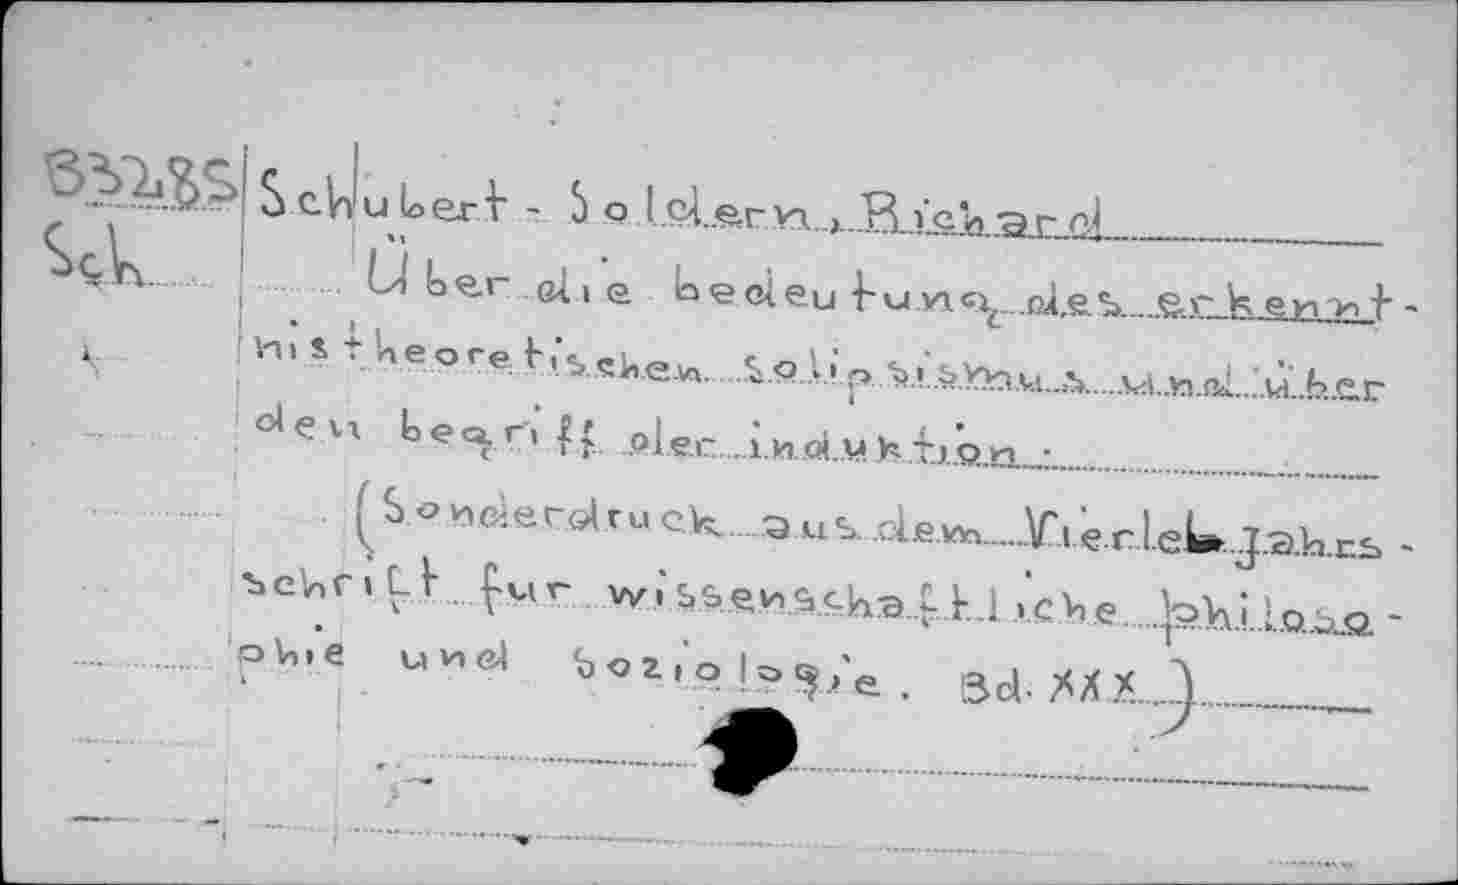 Schubert - Soldern, Richard
Sch
Über die bedeutung des erkennt-
nistheoretischen Solipsismus und über
den begriff der induktion.
(Sonderdruck aus dem Vierteljahrs -
schrift fur wissenschaftliche philoso -
phie und soziologie. Bd. XXX)